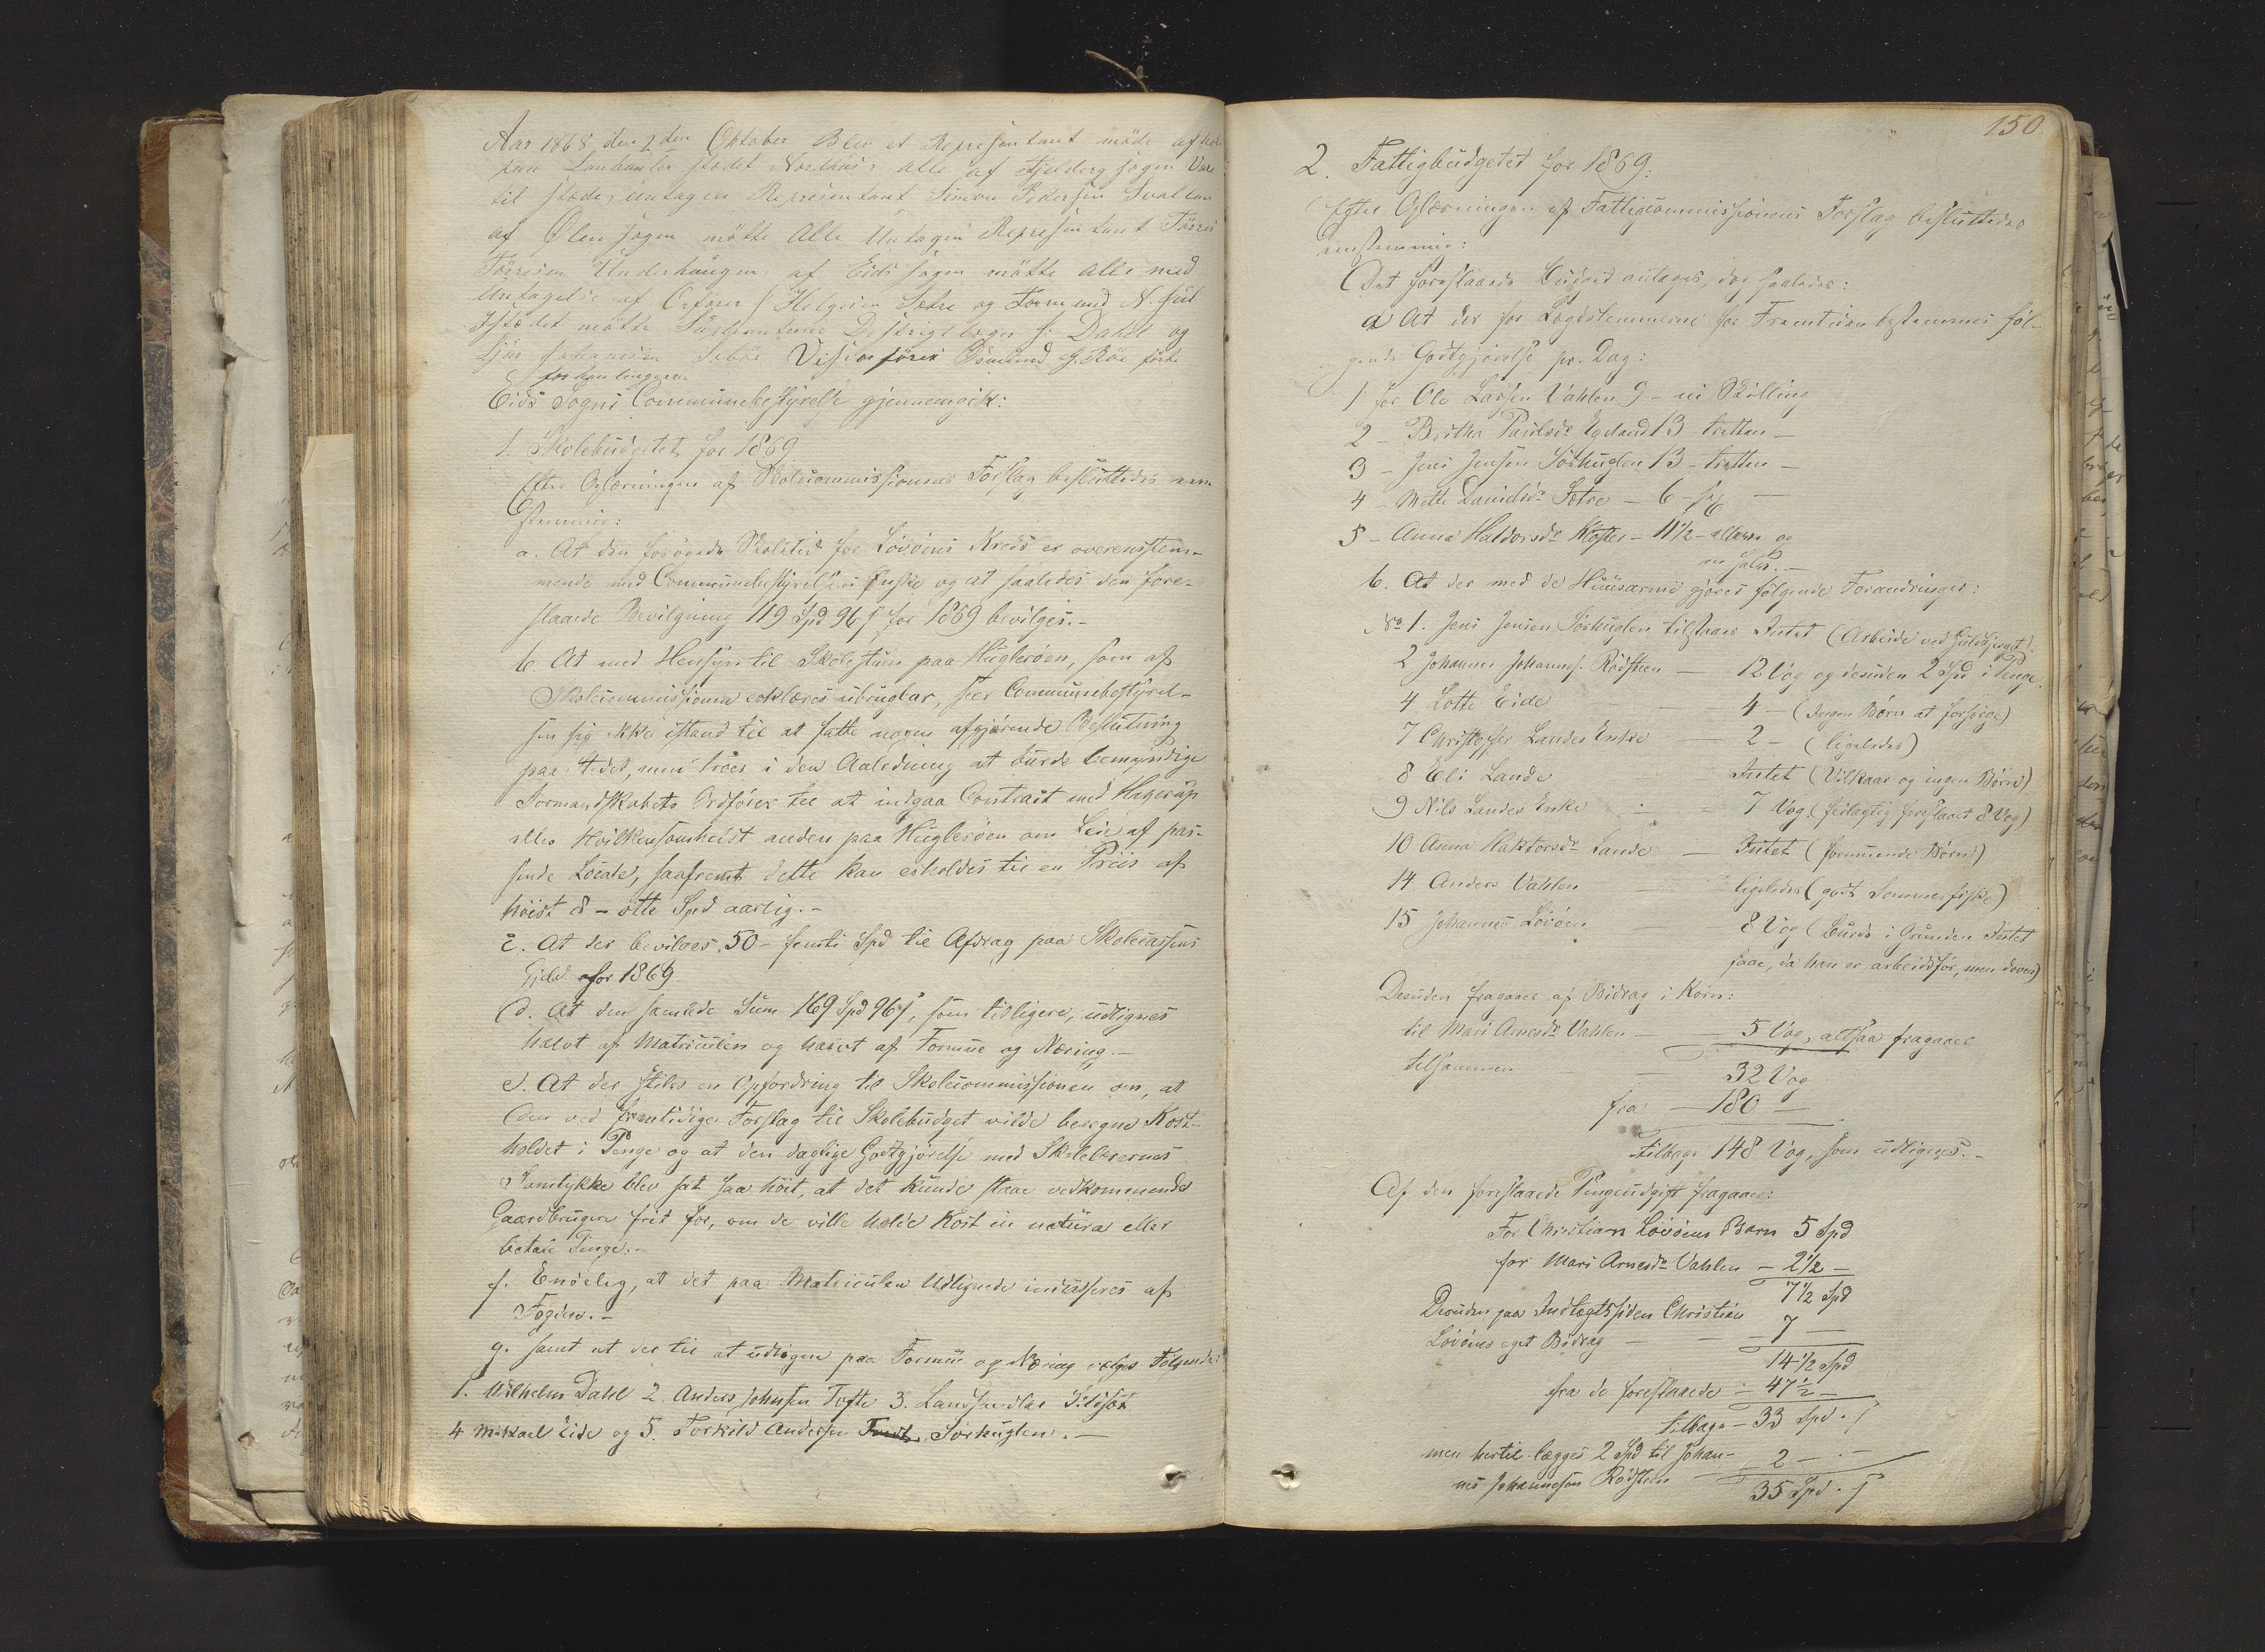 Aar 1868 den 2den Oktober Blev et Represintant möde af hold
paa Lanhandler stedet Nordhüs, alle af Fjelberg sogen Vare
til stede, üntagen Represintant Simon Pedersen Svallan
af Ölen sogen mötte Alle Untagen Represintant Törres
Törresen Ünderhaugen, af Eids sogen mötte alle med
Untagelse af Helgesen Sætre og
Istedet mötte Süpleanterne Dahl og
Johanesen Sebøe Visseorförer Osmund G. Röe förte
forhanlingen.
Eids Sogns Communebestyrelse gjennemgik:
1. Skolebudgetet for 1869.
Efter Oplæsningen af Skolecommissionens Forslag besluttedes een-
stemmig:
a. At den forøgede Skoletid for Løvøens Kreds er overensstem-
mende med Communebestyrelsens Ønske og at saaledes den fore-
slaaede Bevilgning 119 Spd 96 s for 1869 bevilges.-
b. At med Hensyn til Skolestuen paa Huglerøen, som af
Skolecommissionen erklæres ubrugbar, seer Communebestyrel-
sen sig ikke istand til at fatte nogen afgjørende Beslutning
paa Stedet, men troer i den Anledning at burde bemyndige
Formandskabets Ordfører til at indgaa Contract med Hagerup
eller hvilkensomhelst anden paa Huglerøen om Leie af pas-
sende Locale, saafremt dette kan erholdes til en Priis af
høist 8 - otte Spd aarlig.-
c. At der bevilges 50 - femti Spd til Afdrag paa Skolecassens
Gjeld for 1869.
d. At den samlede Sum 169 Spd 96 s, som tidligere, udlignes
halvt af Matriculen og halvt af Formue og Næring.-
e. At der stiles en Opfordring til Skolecommissionen om, at
den ved fremtidige Forslag til Skolebudget vilde beregne Kost-
holdet i Penge og at den daglige Godtgjørelse med Skolelærernes
Samtykke blev sat saa høit, at det kunde staae vedkommende
Gaardbrugere frit for, om de ville holde Kost in natura eller
betale Penge.-
f. Endelig, at det paa Matriculen Udlignede inddrives af
Fogden.-
g. samt at der til at udligne paa Formue og Næring vælges Følgende:
1. Wilhelm Dahl 2. Anders Johnsen Tofte 3. Landhandler
4 Mikael Eide og 5. Torkild Andersen Sørhuglen.-
150.
2. Fattigbudgetet for 1869.
Efter Oplæsningen af Fattigcommissionens Forslag besluttedes
eenstemmig:
Det foreslaaede Budget antages, dog saaledes:
a At der for Lægdslemmerne for Fremtiden bestemmes føl-
gende Godtgjørelse pr. Dag:
1 for Ole Larsen Vahlen 9 - ni Skilling
2 - Brithe Paulsdr Egeland 13 - tretten -
3 - Jens Jensen Sørhuglen 13 - tretten -
4 - Mette Davidsdr Sætre - 6 - sex -
5 - Anna Haldorsdr Kloster - 11½ - elleve og
en halv.-
b. At der med de Huusarme gjøres følgende Forandringer:
No 1. Jens Jensen Sørhuglen tilstaaes Intet (Arbeide ved Guldbjerget).
2 Johannes Johanness. Rødsteen - 12 Vog og desuden 2 Spd i Penge.
4 Lotte Eide - 4 - (Ingen Børn at forsørge)
7 Christopher Landes Enke - 2 - (ligeledes)
8 Eli Lande - Intet (Vilkaar og ingen Børn)
9 Nils Landes Enke - 7 Vog (feilagtig foreslaaet 8 Vog)
10 Anna Haktorsdr Lande - Intet (formuende Børn)
14 Anders Vahlen - ligeledes (godt Sommerfiske)
15 Johannes Løvøen - 8 Vog (burde i Grunden Intet
faae, da han er arbeidsfør, men doven)
Desuden fragaaer af Bidrag i Korn:
til Mari Arnesdr Vahlen - 5 Vog, altsaa fragaaer
tilsammen - 32 Vog
fra - 180 -
tilbage 148 Vog, som udlignes.-
Af den foreslaaede Pengeudgift fragaaer:
For Christian Løvøens Barn 5 Spd
for Mari Arnesdr Vahlen - 2½ -
7½ Spd
Desuden paa Indtægtssiden Christian
Løvøens eget Bidrag - 7 -
14½ Spd
fra de foreslaaede - 47½ -
tilbage - 33 Spd. s
men hertil lægges 2 Spd til Johan-
nes Johannesen Rødsteen - 2 -
35 Spd. s